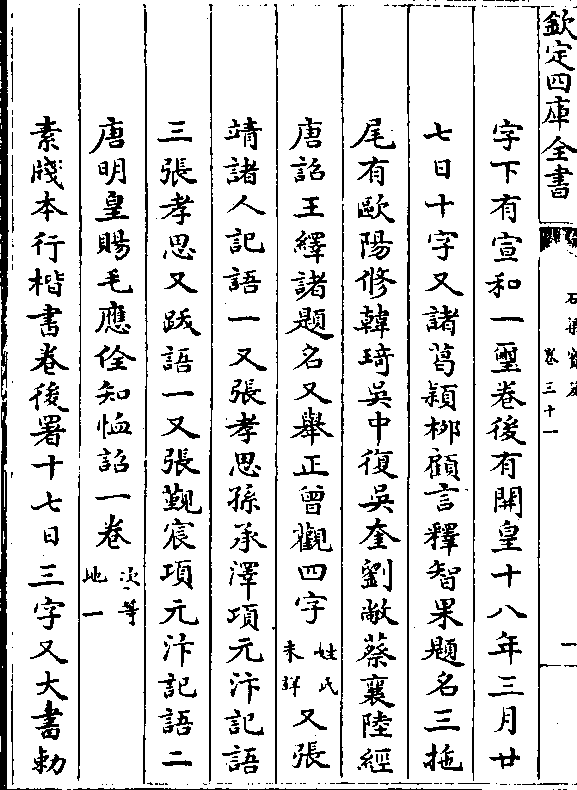 欽定四庫全書
石渠寶笈
卷三十一
一
字下有宣和一璽卷後有開皇十八年三月廿
七日十字又諸葛穎栁顧言釋智果題名三拖
尾有歐陽修韓琦吳中復吳奎劉敞蔡襄陸經
唐詔王繹諸題名又舉正曾觀四字姓氏未詳又張
靖諸人記語一又張孝思孫承澤項元汴記語
三張孝思又跋語一又張覲宸項元汴記語二
唐明皇賜毛應佺知恤詔一卷次等地一
素牋本行楷書卷後署十七日三字又大書勅